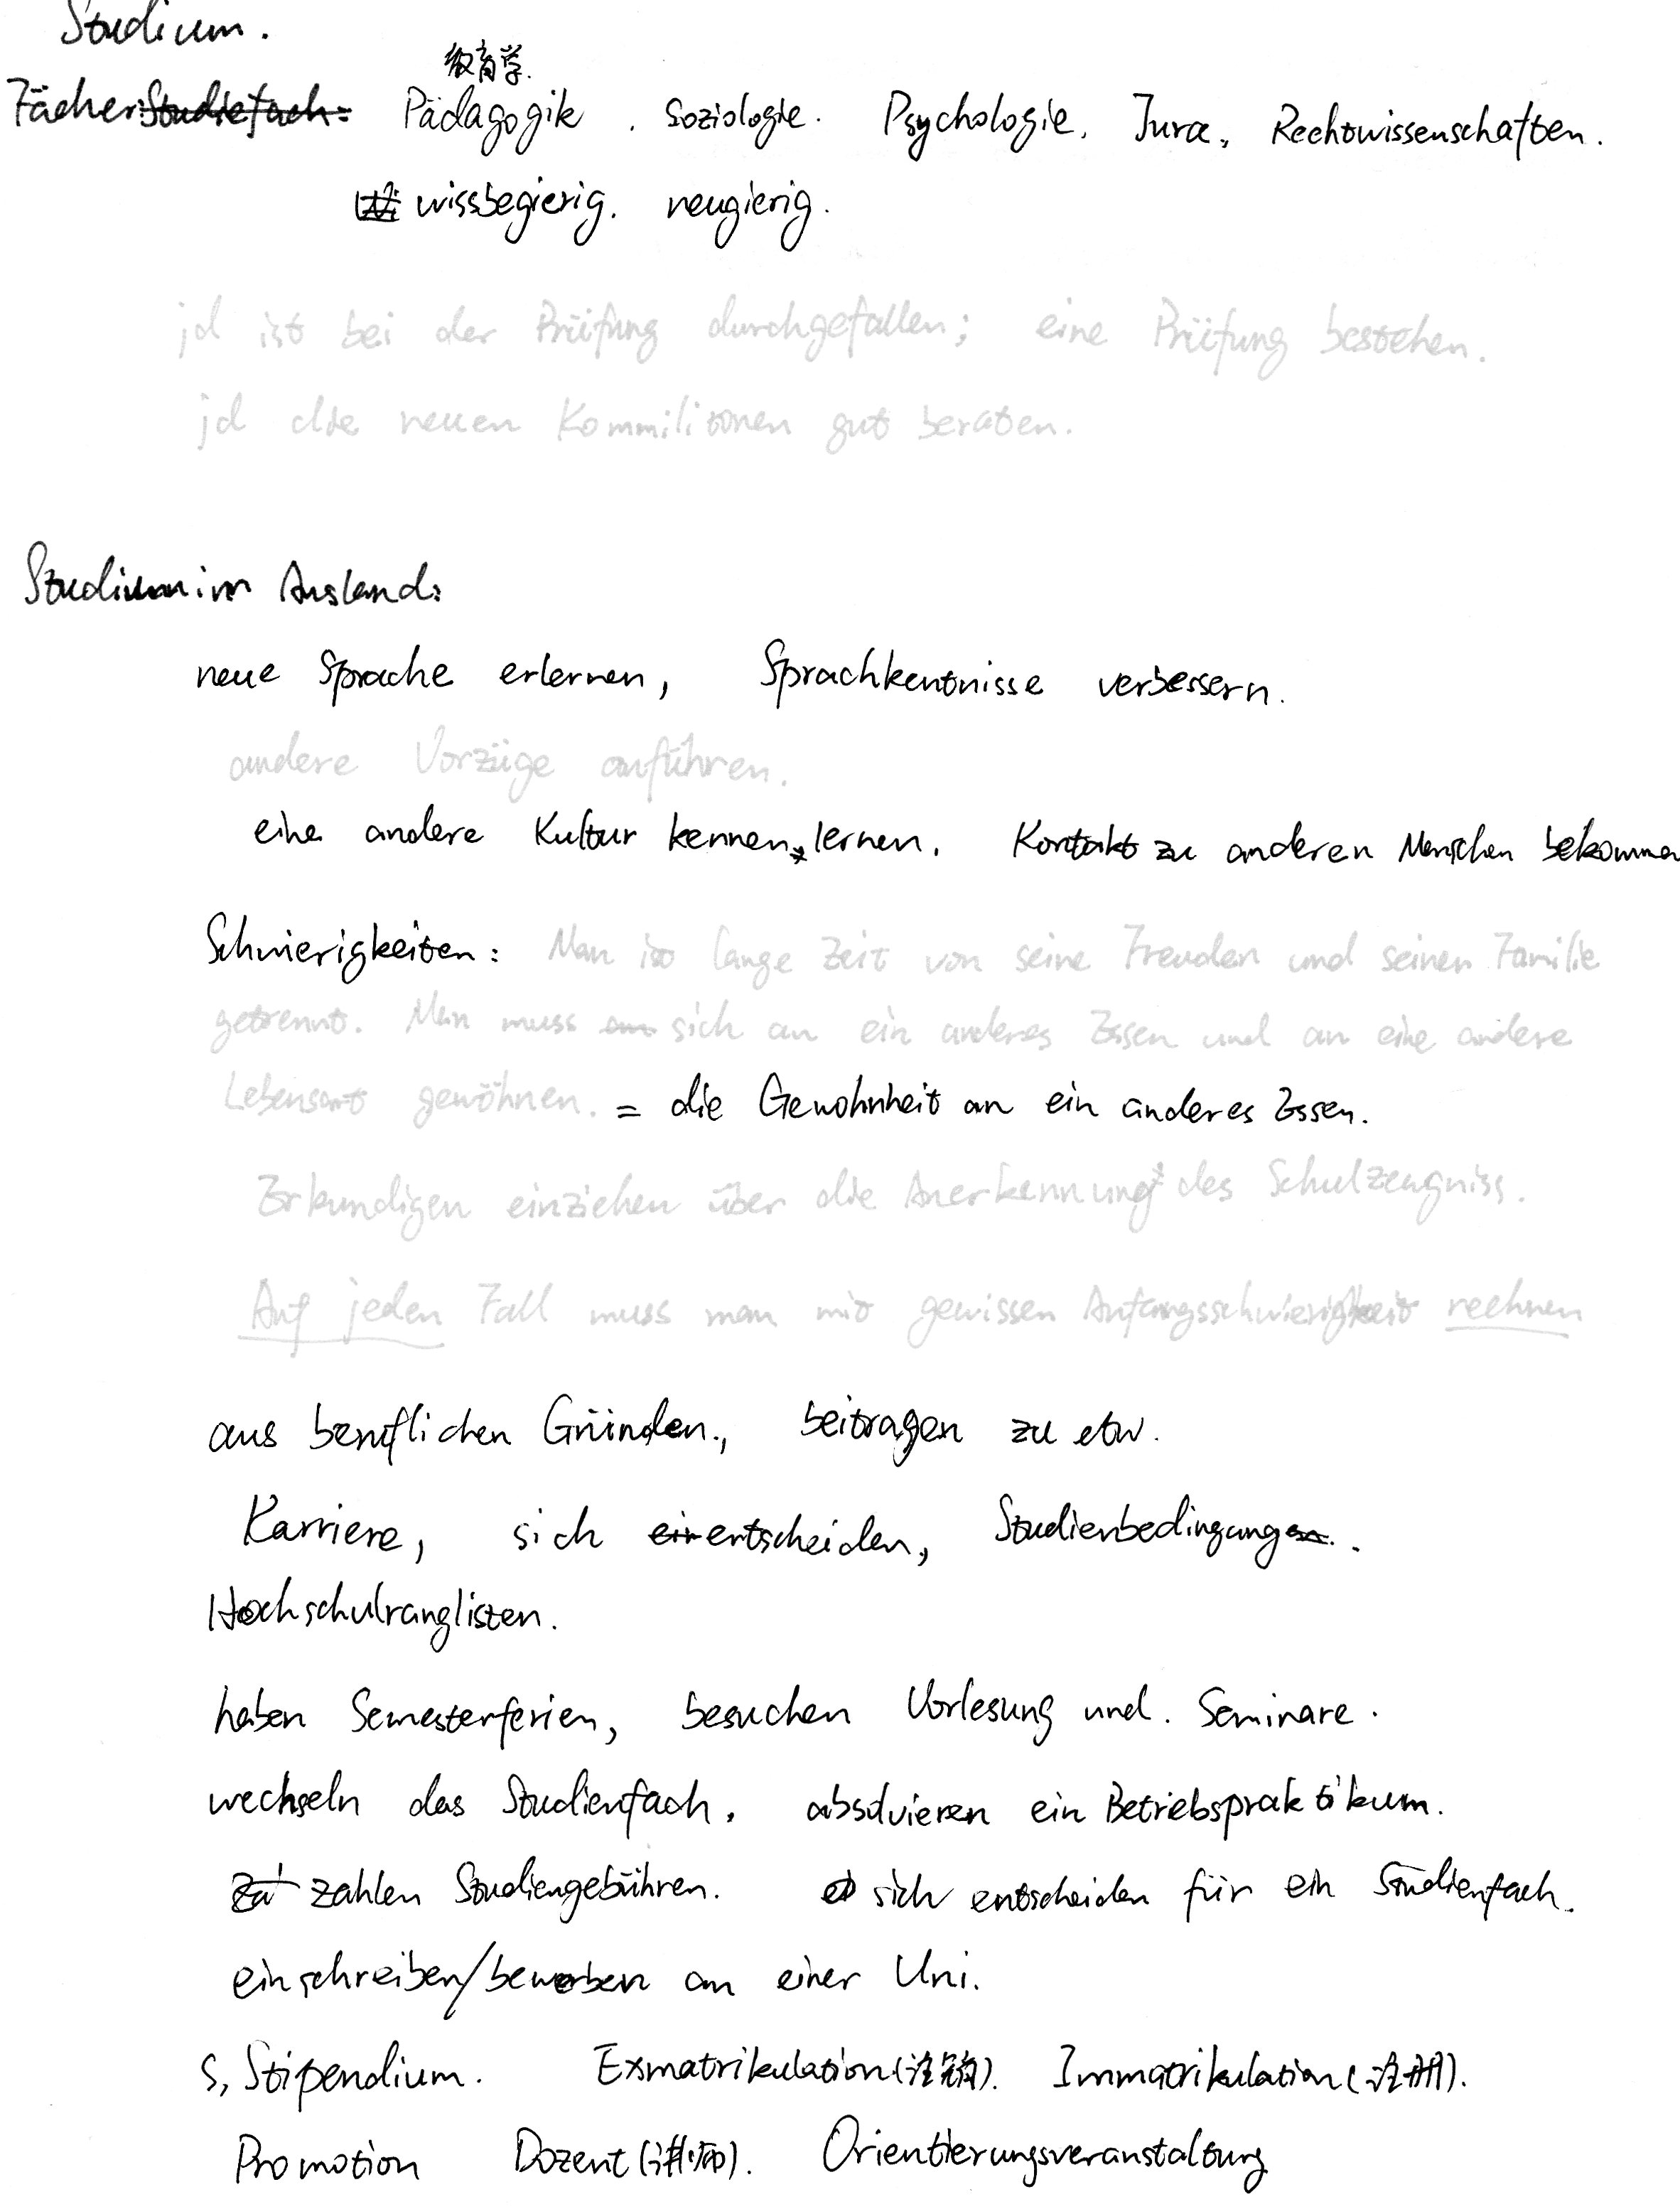 Studium.
教育学.
Fächer: Studiefach: Pädagogik. Soziologie. Psychologie. Jura, Rechtwissenschaften.
wissbegierig. neugierig.
jd ist bei der Prüfung durchgefallen; eine Prüfung bestehen.
jd die neuen Kommilitonen gut beraten.
Studium im Ausland:
neue Sprache erlernen, Sprachkentnisse verbessern.
andere Vorzüge anführen.
eine andere Kultur kennen lernen. Kontakt zu anderen Menschen bekommen
Schwierigkeiten: Man ist lange Zeit von seine Freuden und seinen Familie
getrennt. Man muss sich an ein anderes Essen und an eine andere
Lebensart gewöhnen. = die Gewohnheit an ein anderes Essen.
Erkundigen einziehen über die Anerkennung des Schulzeugniss.
Auf jeden Fall muss man mit gewissen Anfangsschwierigkeit rechnen
aus beruflichen Gründen., beitragen zu etw.
Karriere, sich entscheiden, Studienbedingung.
Hochschulranglisten.
haben Semesterferien, besuchen Vorlesung und. Seminare.
wechseln das Studienfach. absolvieren ein Betriebspraktikum.
zahlen Studiengebühren. sich entscheiden für ein Studienfach.
einschreiben/bewerben an einer Uni.
s, Stipendium. Exmatrikulation(注销). Immatrikulation(注册).
Promotion Dozent(讲师). Orientierungsveranstaltung